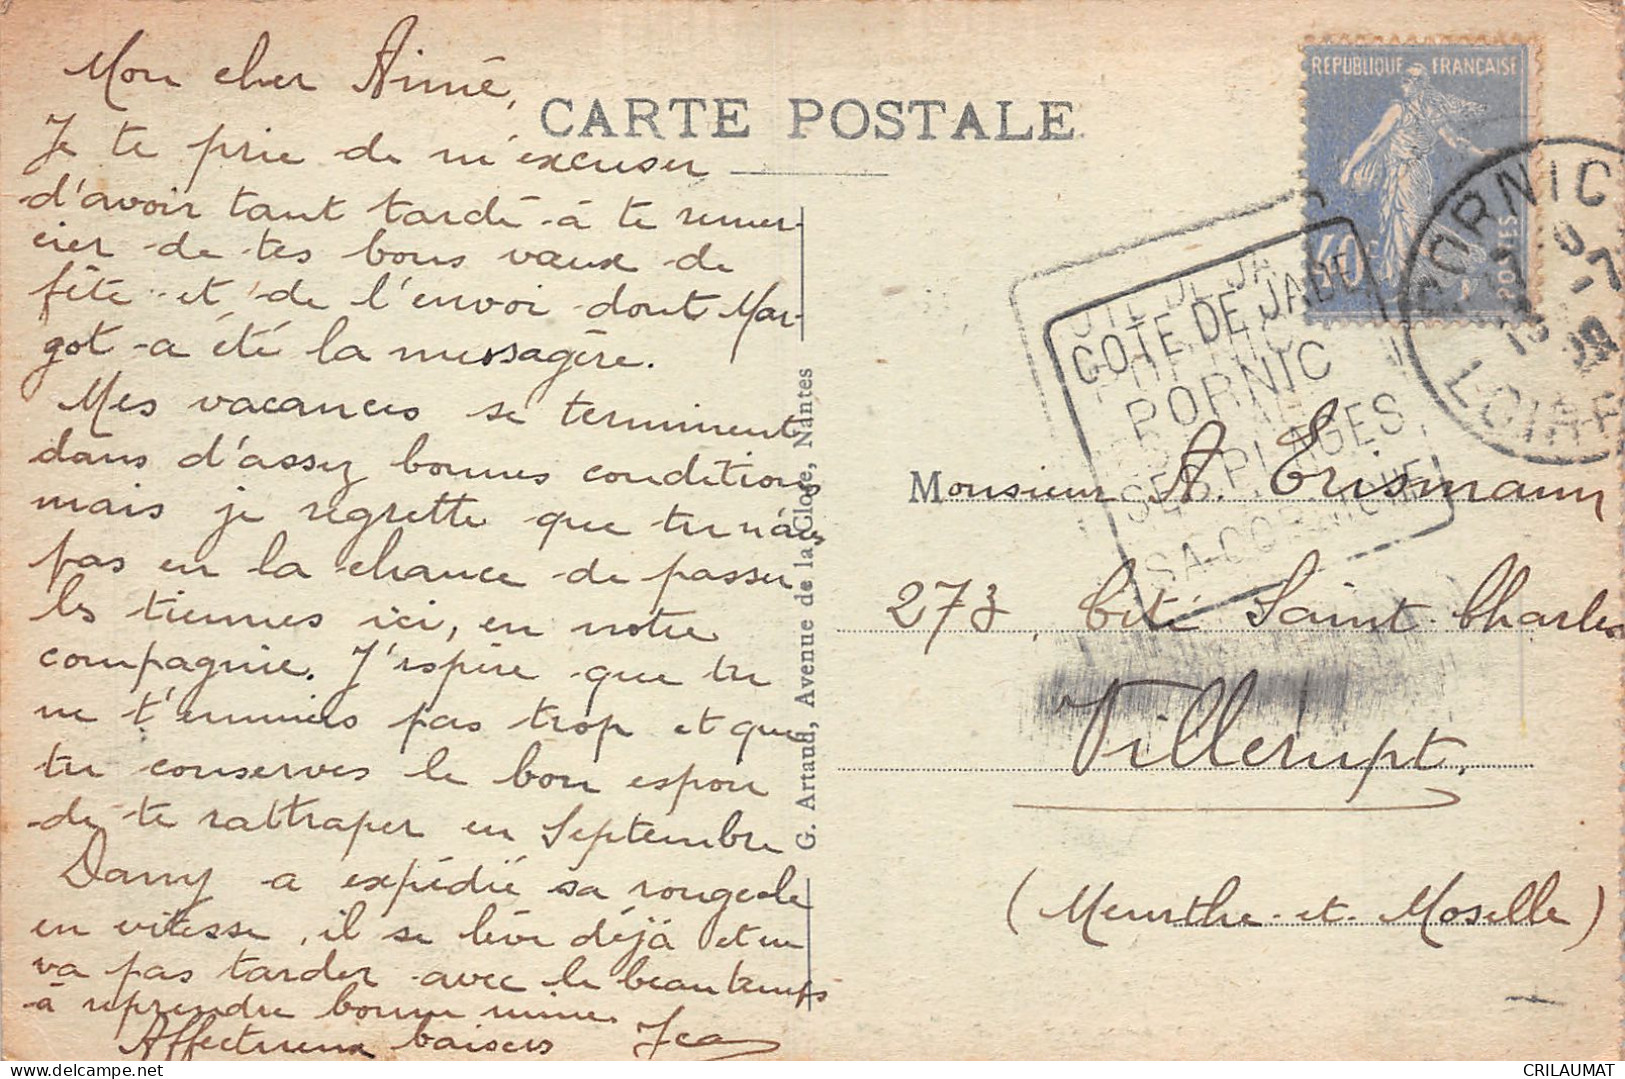 Mon cher Aimé,
Je te prie de m'excuser
d'avoir tant tardé à te remer-
cier de tes bons vœux de
fête et de l'envoi dont Mar-
got a été la messagère.
Mes vacances se terminent
dans d'assez bonnes conditions
mais je regrette que tu n'aies
pas eu la chance de passer
les tiennes ici, en notre
compagnie. J'espère que tu
ne t'ennuies pas trop et que
tu conserves le bon espoir
de te rattraper en Septembre
Dany a expédié sa rougeole
en vitesse, il se lève déjà et ne
va pas tarder avec le beau temps
à reprendre bonne mine.
Affectueux baisers Jean
CARTE POSTALE
G. Artaud, Avenue de la Close, Nantes
REPUBLIQUE FRANÇAISE
40c
POSTES
PORNIC
LOIRE
COTE DE JADE
PORNIC
SES PLAGES
SA CORNICHE
Monsieur A. Erismann
273, Cité Saint Charles
Villerupt.
(Meurthe-et-Moselle)
CRILAUMAT